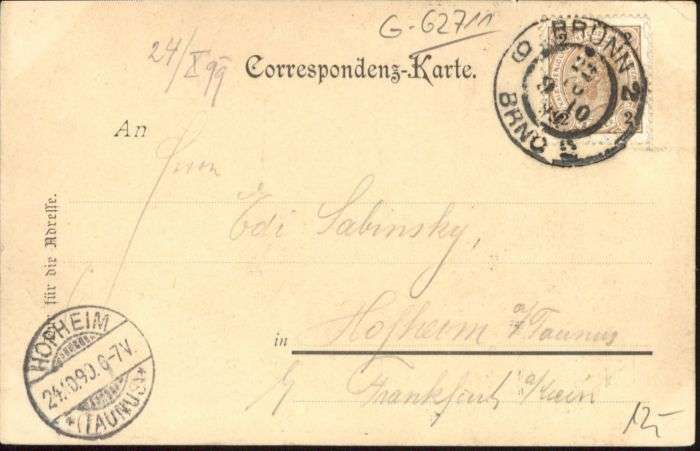 G-62711
24/X 99
Correspondenz-Karte.
BRÜNN 2
BRNO 2
An
Herrn
Edi Sabinsky,
in Hofheim a/Taunus
Frankfurt a/Main
für die Adresse.
HOFHEIM
24.10.9 6-7V.
*(TAUNUS)*
12,-